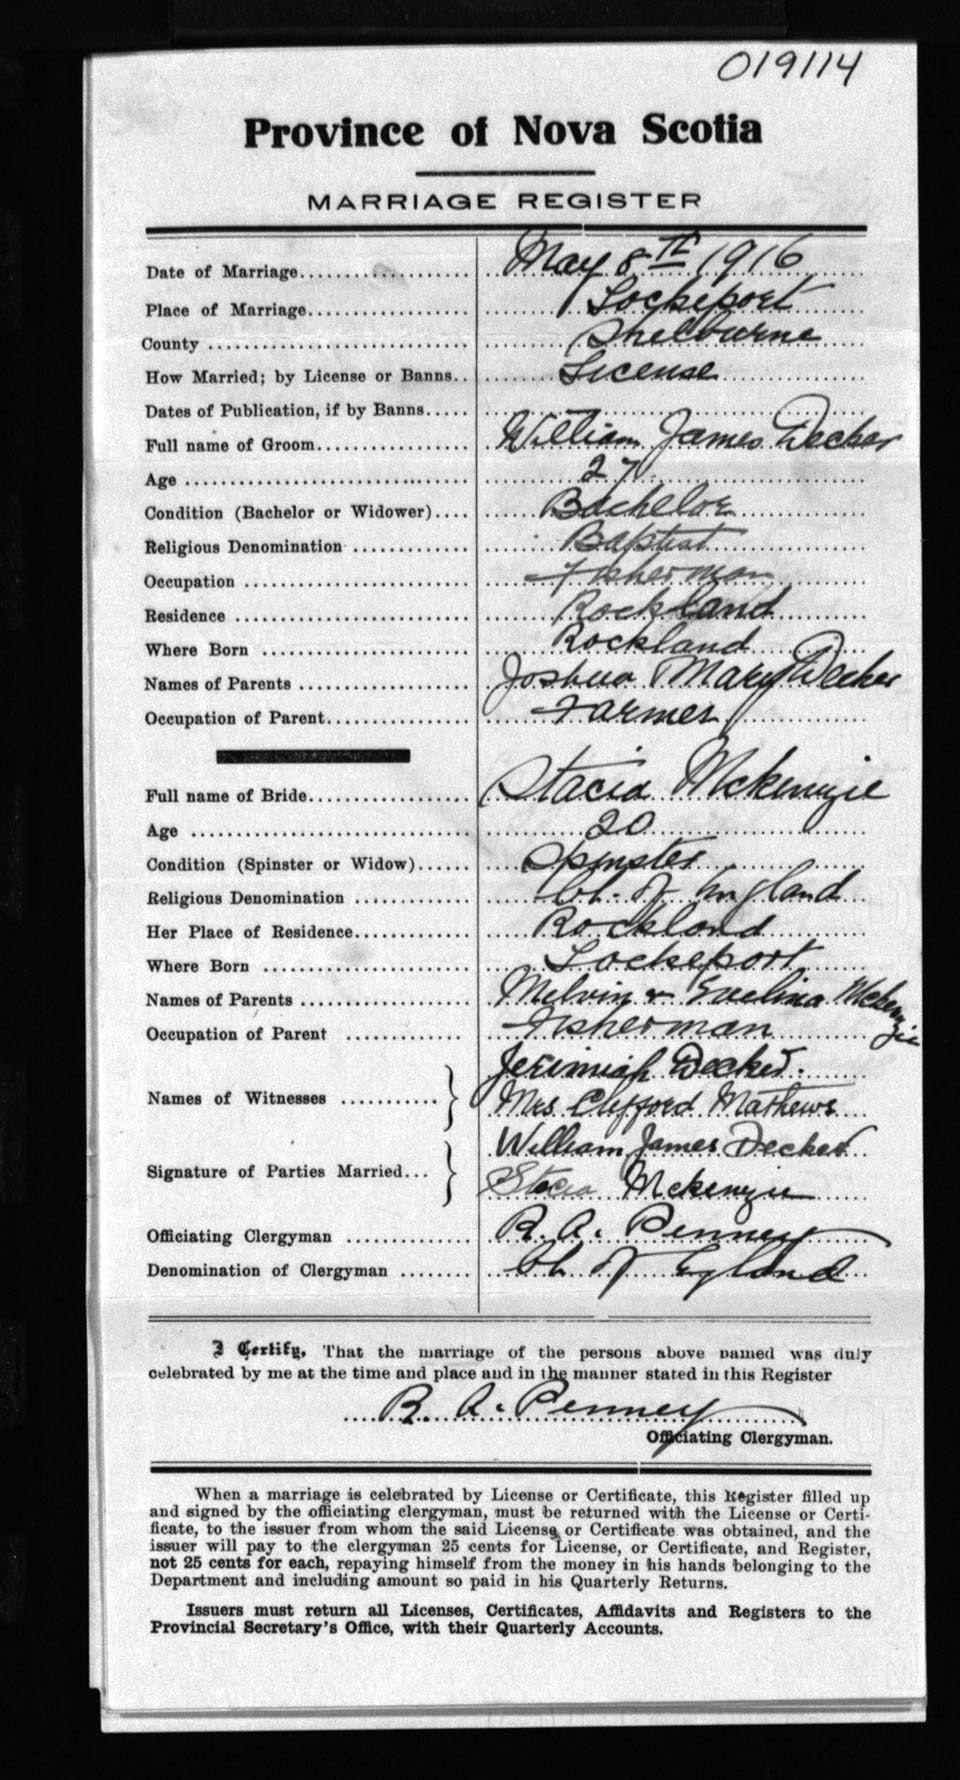 019114
Province of Nova Scotia
MARRIAGE REGISTER
Date of Marriage May 8TH 1916
Place of Marriage Lockeport
County Shelburne
How Married; by License or Banns License
Dates of Publication, if by Banns
Full name of Groom William James Decker
Age 27
Condition (Bachelor or Widower) Bachelor
Religious Denomination Baptist
Occupation Fisherman
Residence Rockland
Where Born Rockland
Names of Parents Joshua Mary Decker
Occupation of Parent Farmer
Full name of Bride Stacia McKenzie
Age 20
Condition (Spinster or Widow) Spinster
Religious Denomination Ch. of England
Her Place of Residence Rockland
Where Born Lockeport
Names of Parents Melvin & Evelina McKenzie
Occupation of Parent Fisherman
Names of Witnesses Jeremiah Decker.
Mrs Clifford Mathews
Signature of Parties Married William James Decker
Stacia McKenzie
Officiating Clergyman R. A. Penney
Denomination of Clergyman Ch of England
I Certify, That the marriage of the persons above named was duly
celebrated by me at the time and place and in the manner stated in this Register
R. A. Penney
Officiating Clergyman.
When a marriage is celebrated by License or Certificate, this Register filled up
and signed by the officiating clergyman, must be returned with the License or Certi-
ficate, to the issuer from whom the said License or Certificate was obtained, and the
issuer will pay to the clergyman 25 cents for License, or Certificate, and Register,
not 25 cents for each, repaying himself from the money in his hands belonging to the
Department and including amount so paid in his Quarterly Returns.
Issuers must return all Licenses, Certificates, Affidavits and Registers to the
Provincial Secretary's Office, with their Quarterly Accounts.